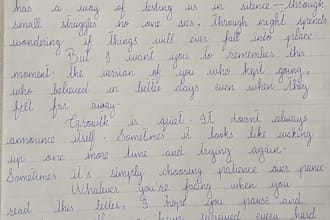 has a way of testing us in silence — through
small struggles no one sees, through night spends
wondering if things will ever fall into place.
But I want you to remember this
moment: the version of you who kept going,
who believed in better days even when they
felt far away.
Growth is quiet. It doesn't always
announce itself. Sometimes it looks like waking
up one more time and trying again.
Sometimes it's simply choosing patience over panic.
Whatever you're facing when you
read this letter, I hope you pause and
you survived even hard